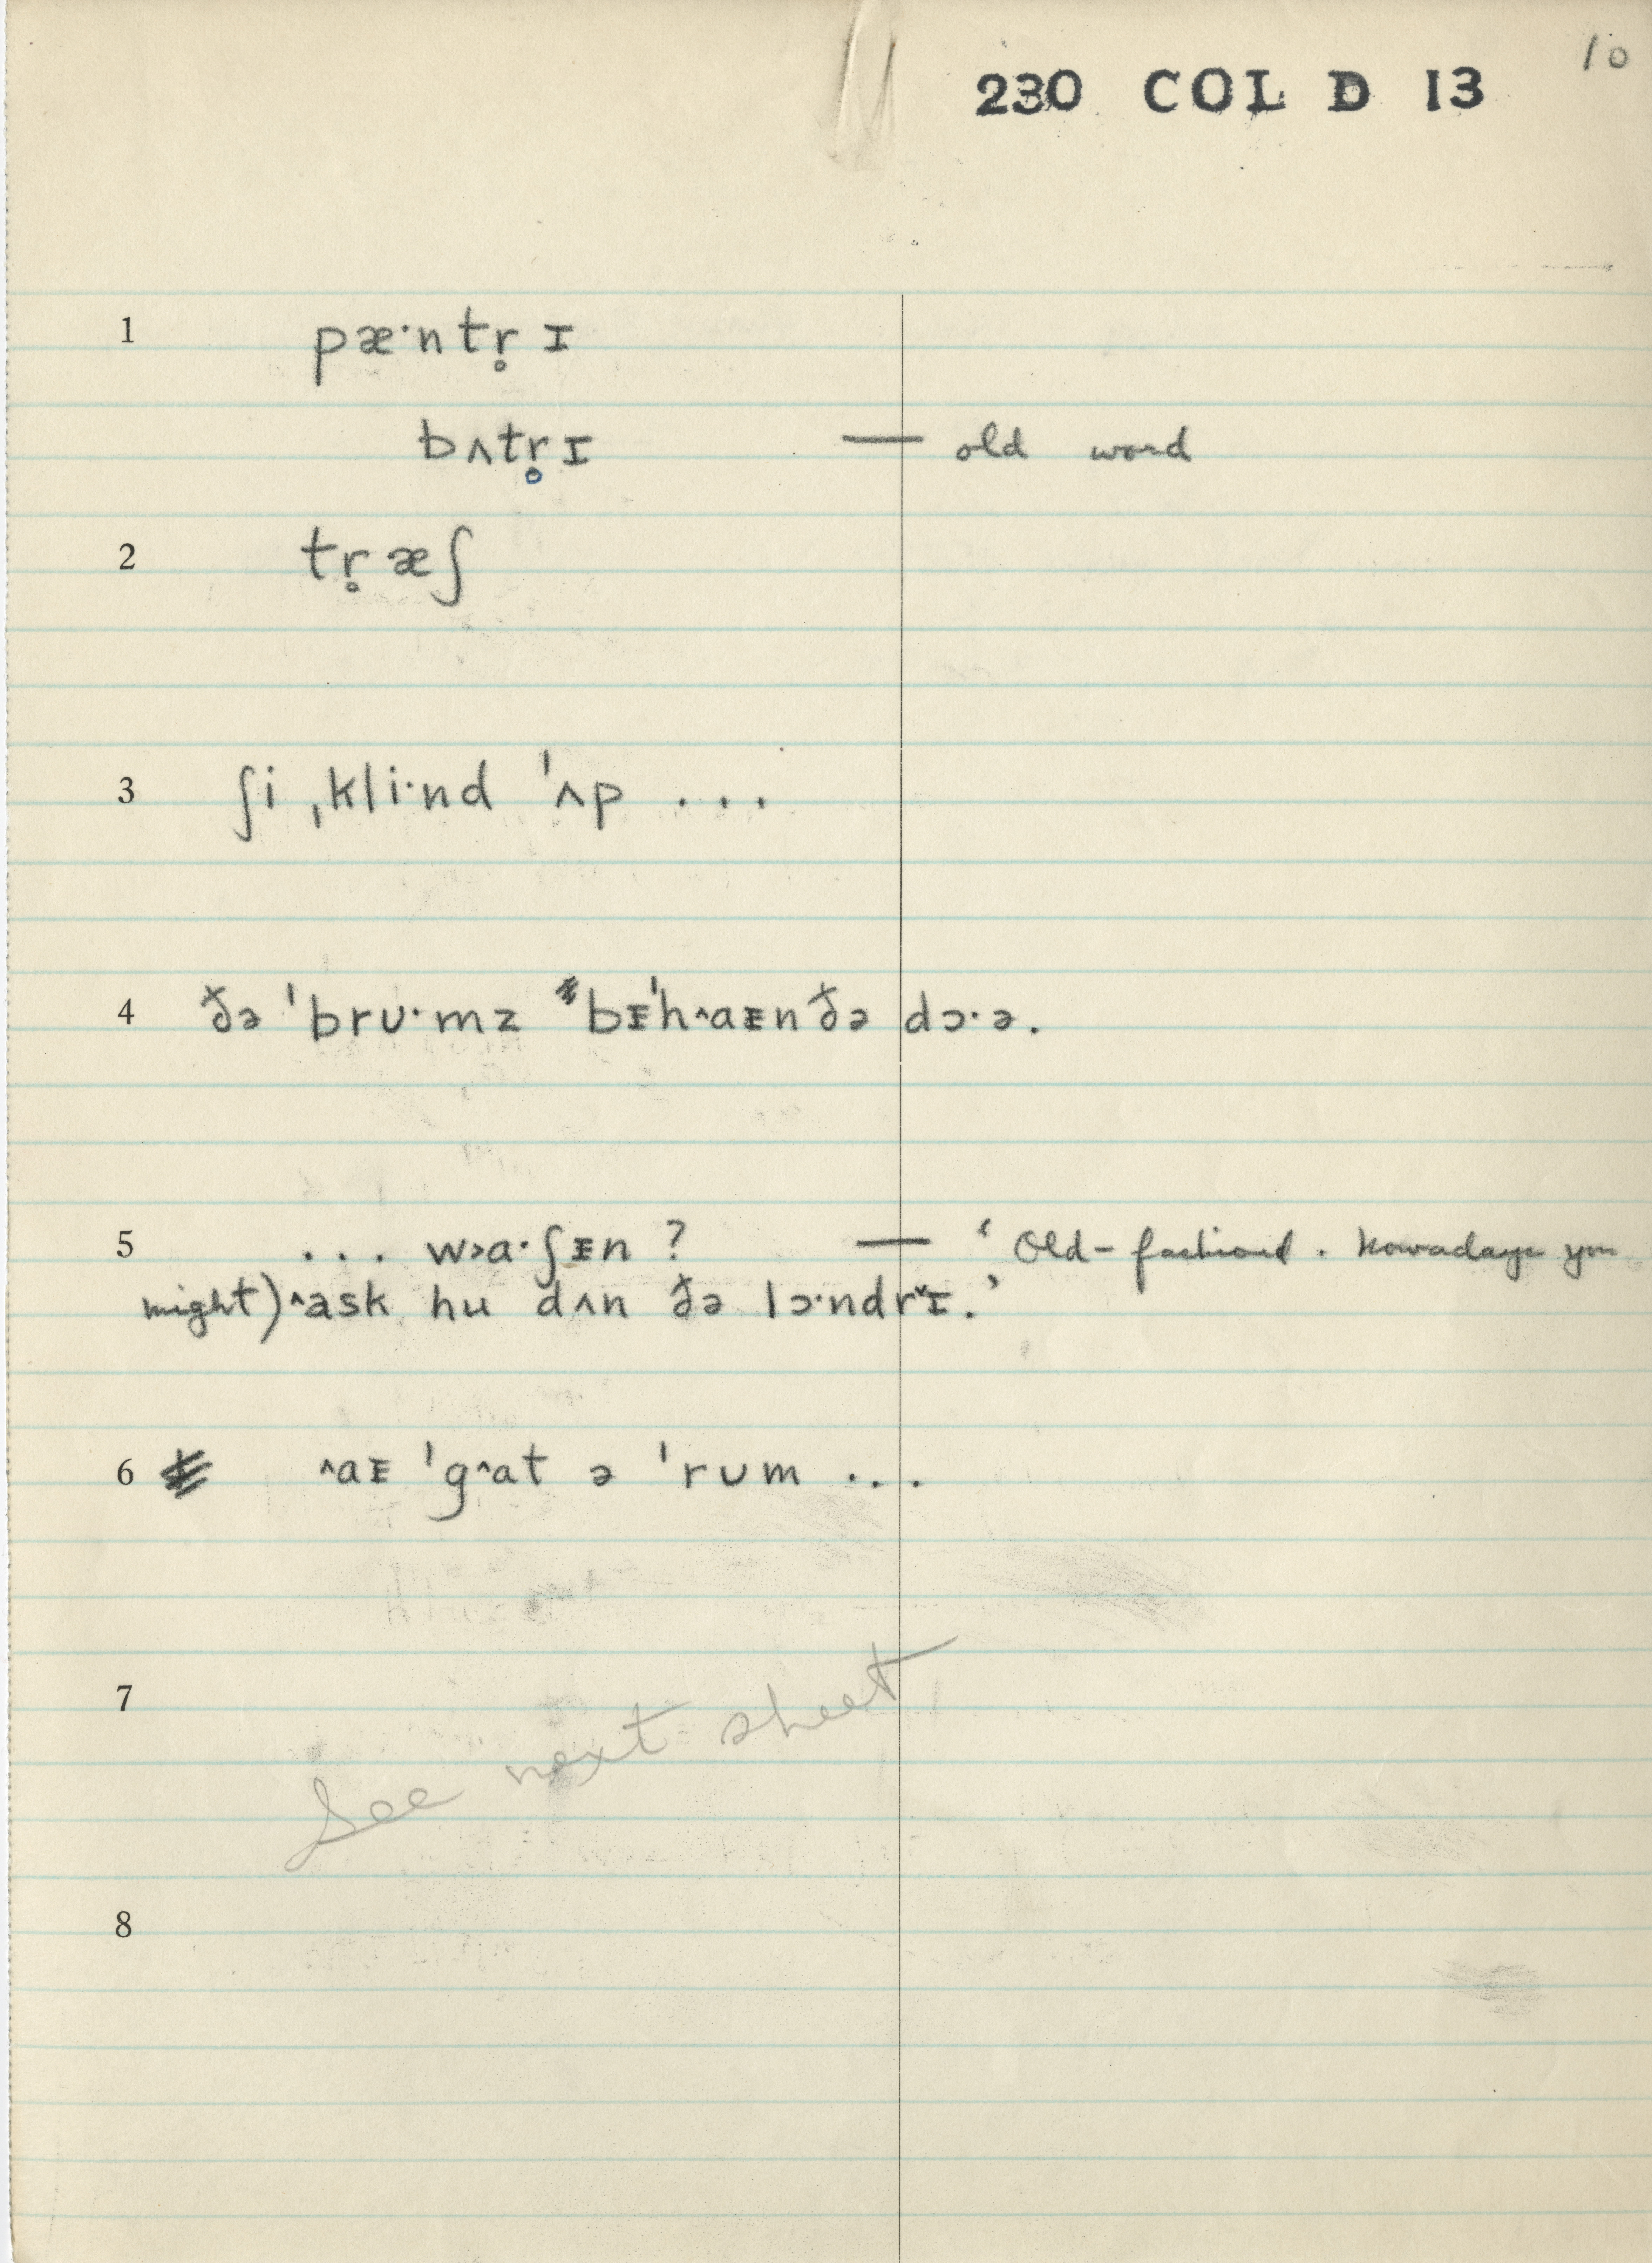 10
230 COL D 13
1 pæ·ntr̥ɪ
bʌtr̥ɪ — old word
2 tr̥æʃ
3 ʃi ˌkli·nd ˈʌp ...
4 ðə ˈbrʊ·mz bᵻˈh˄aᵻn ðə dɔ·ə.
5 ... w˃a·ʃᵻn ? — ‘Old-fashioned. Nowadays you
might) ˄ask hu dʌn ðə lɔ·ndr˅ɪ.’
6 ˄aᵻ ˈg˄at ə ˈrʊm ...
7
See next sheet
8